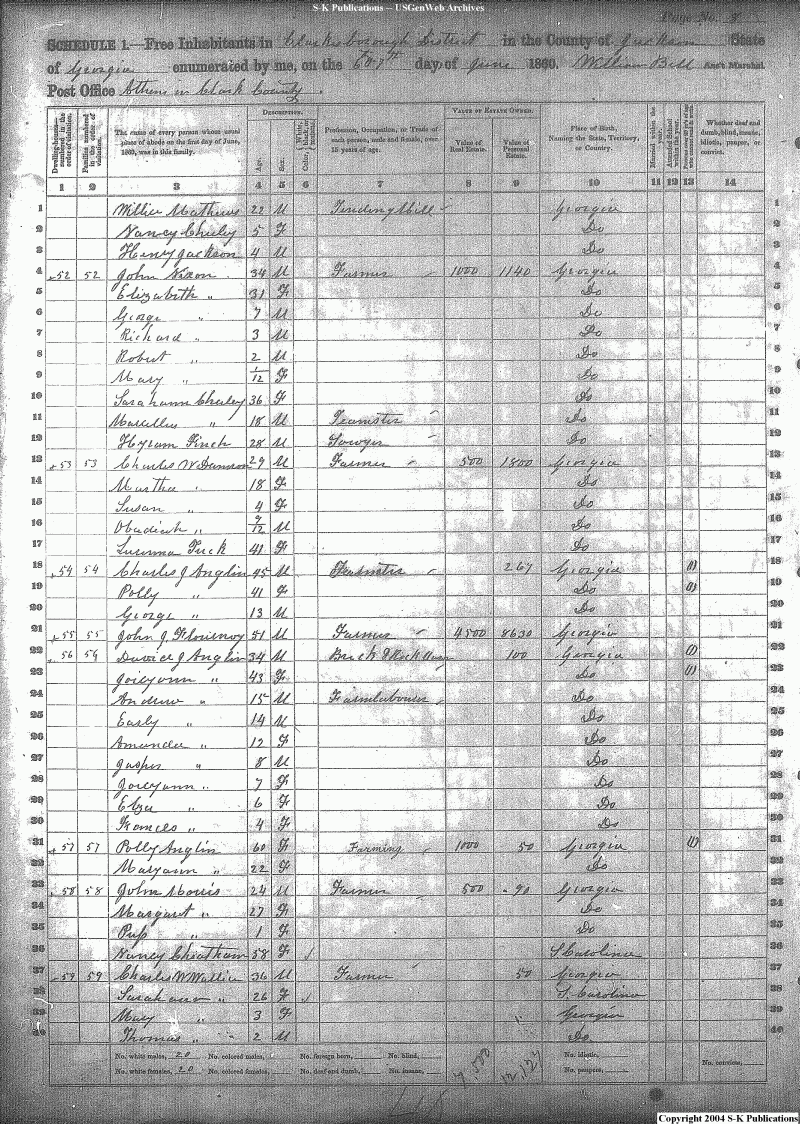 S-K Publications – USGenWeb Archives
Page No. 8
SCHEDULE 1.—Free Inhabitants in Clarkesborough District in the County of Jackson State
of Georgia enumerated by me, on the 6th day of June 1860. William Bell Ass't Marshal
Post Office Athens in Clark County.
Dwelling-houses numbered in the order of visitation. Families numbered in the order of visitation. The name of every person whose usual place of abode on the first day of June, 1860, was in this family. DESCRIPTION. Age. Sex. Color, Profession, Occupation, or Trade of each person, male and female, over 15 years of age. VALUE OF ESTATE OWNED. Value of Real Estate. Value of Personal Estate. Place of Birth, Naming the State, Territory, or Country. Married within the year. Attended School within the year. Whether deaf and dumb, blind, insane, idiotic, pauper, or convict.
1 2 3 4 5 6 7 8 9 10 11 12 13 14
1 Mathews 22 M Tending Mill Georgia 1
2 Nancy 5 F Do 2
3 Henry Jackson 4 M Do 3
4 52 52 John Nixon 34 M Farmer 1000 1140 Georgia 4
5 Elizabeth " 31 F Do 5
6 George " 7 M Do 6
7 Richard " 3 M Do 7
8 Robert " 2 M Do 8
9 Mary " 1/12 F Do 9
10 Sarahann 36 F Do 10
11 Marcellus " 18 M Teamster Do 11
12 Hyram Finch 28 M Sawyer Do 12
13 53 53 Charles W 29 M Farmer 500 1800 Georgia 13
14 Martha " 18 F Do 14
15 Susan " 4 F Do 15
16 Obadiah " 9/12 M Do 16
17 Tuck 41 F Do 17
18 54 54 Charles J Anglin 45 M Teamster 267 Georgia (1) 18
19 Polly " 41 F Do (1) 19
20 George " 13 M Do 20
21 55 55 John J Flournoy 51 M Farmer 4500 8630 Georgia 21
22 56 56 J Anglin 34 M Brick & Rock 100 Georgia (1) 22
23 Joicyann " 43 F Do (1) 23
24 Andrew " 15 M Farmlabourer Do 24
25 Early " 14 M Do 25
26 Amanda " 12 F Do 26
27 Jasper " 8 M Do 27
28 Joicyann " 7 F Do 28
29 Eliza " 6 F Do 29
30 Frances " 4 F Do 30
31 57 57 Polly Anglin 60 F Farming 1000 50 Georgia (1) 31
32 Maryann " 22 F Do 32
33 58 58 John Morris 24 M Farmer 500 90 Georgia 33
34 Margaret " 27 F Do 34
35 Pus " 1 F Do 35
36 Nancy Cheatham 58 F S Carolina 36
37 59 59 Charles W Wallis 36 M Farmer 50 Georgia 37
38 Sarahann " 26 F S. Carolina 38
39 Mary " 3 F Georgia 39
40 Thomas " 2 M Do 40
No. white males, 20 No. colored males, No. foreign born, No. blind, 7,500 12,127 No. idiotic, No. convicts,
No. white females, 20 No. colored females, No. deaf and dumb, No. insane, No. paupers,
Copyright 2004 S-K Publications